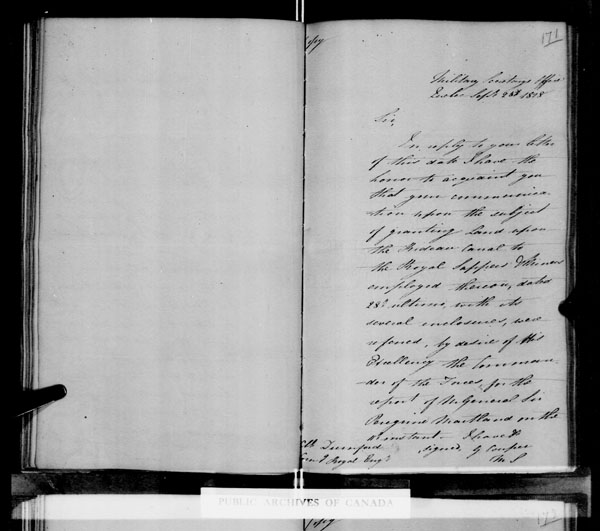 Copy
171
Military Secretarys Office
Sept 23d 1828
Sir,
In reply to your letter
of this date I have the
honor to acquaint you
that your communica
tion upon the subject
of granting Land upon
the Rideau Canal to
the Royal Sappers & Miners
employed thereon, dated
28th ultimo, with its
several enclosures, were
referred, by desire of His
Excellency the Comman-
der of the Forces, for the
report of M General Sir
Peregrine Maitland on the
instant - I have &c
Col. Durnford signed, G Couper
Com.g Royal Eng.s M S
PUBLIC ARCHIVES OF CANADA
Copy
172